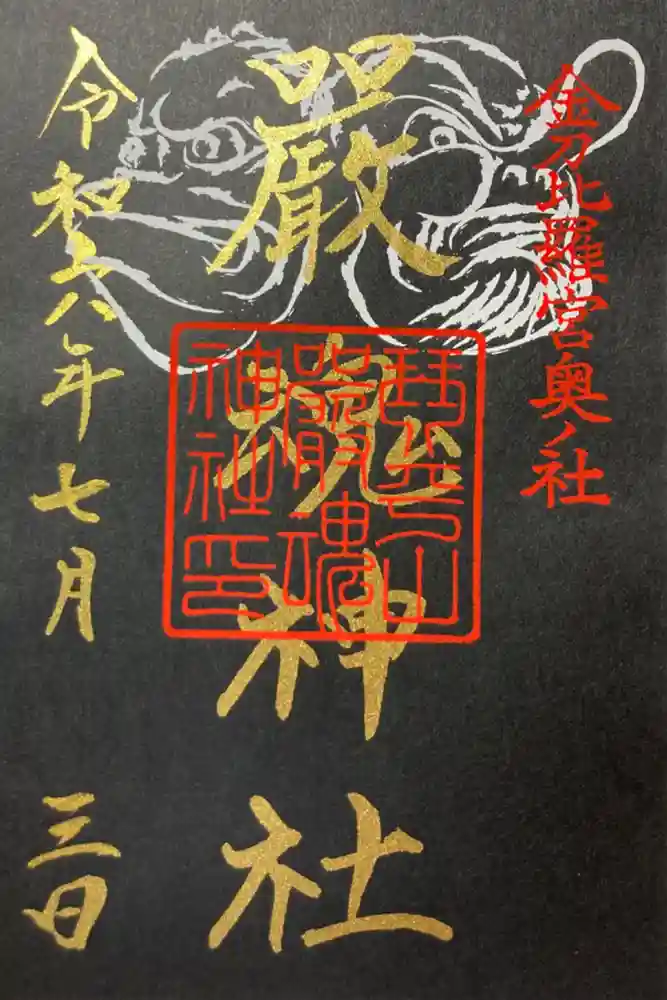 金刀比羅宮奥ノ社
嚴魂神社
令和六年七月三日
琴平山
嚴魂
神社印